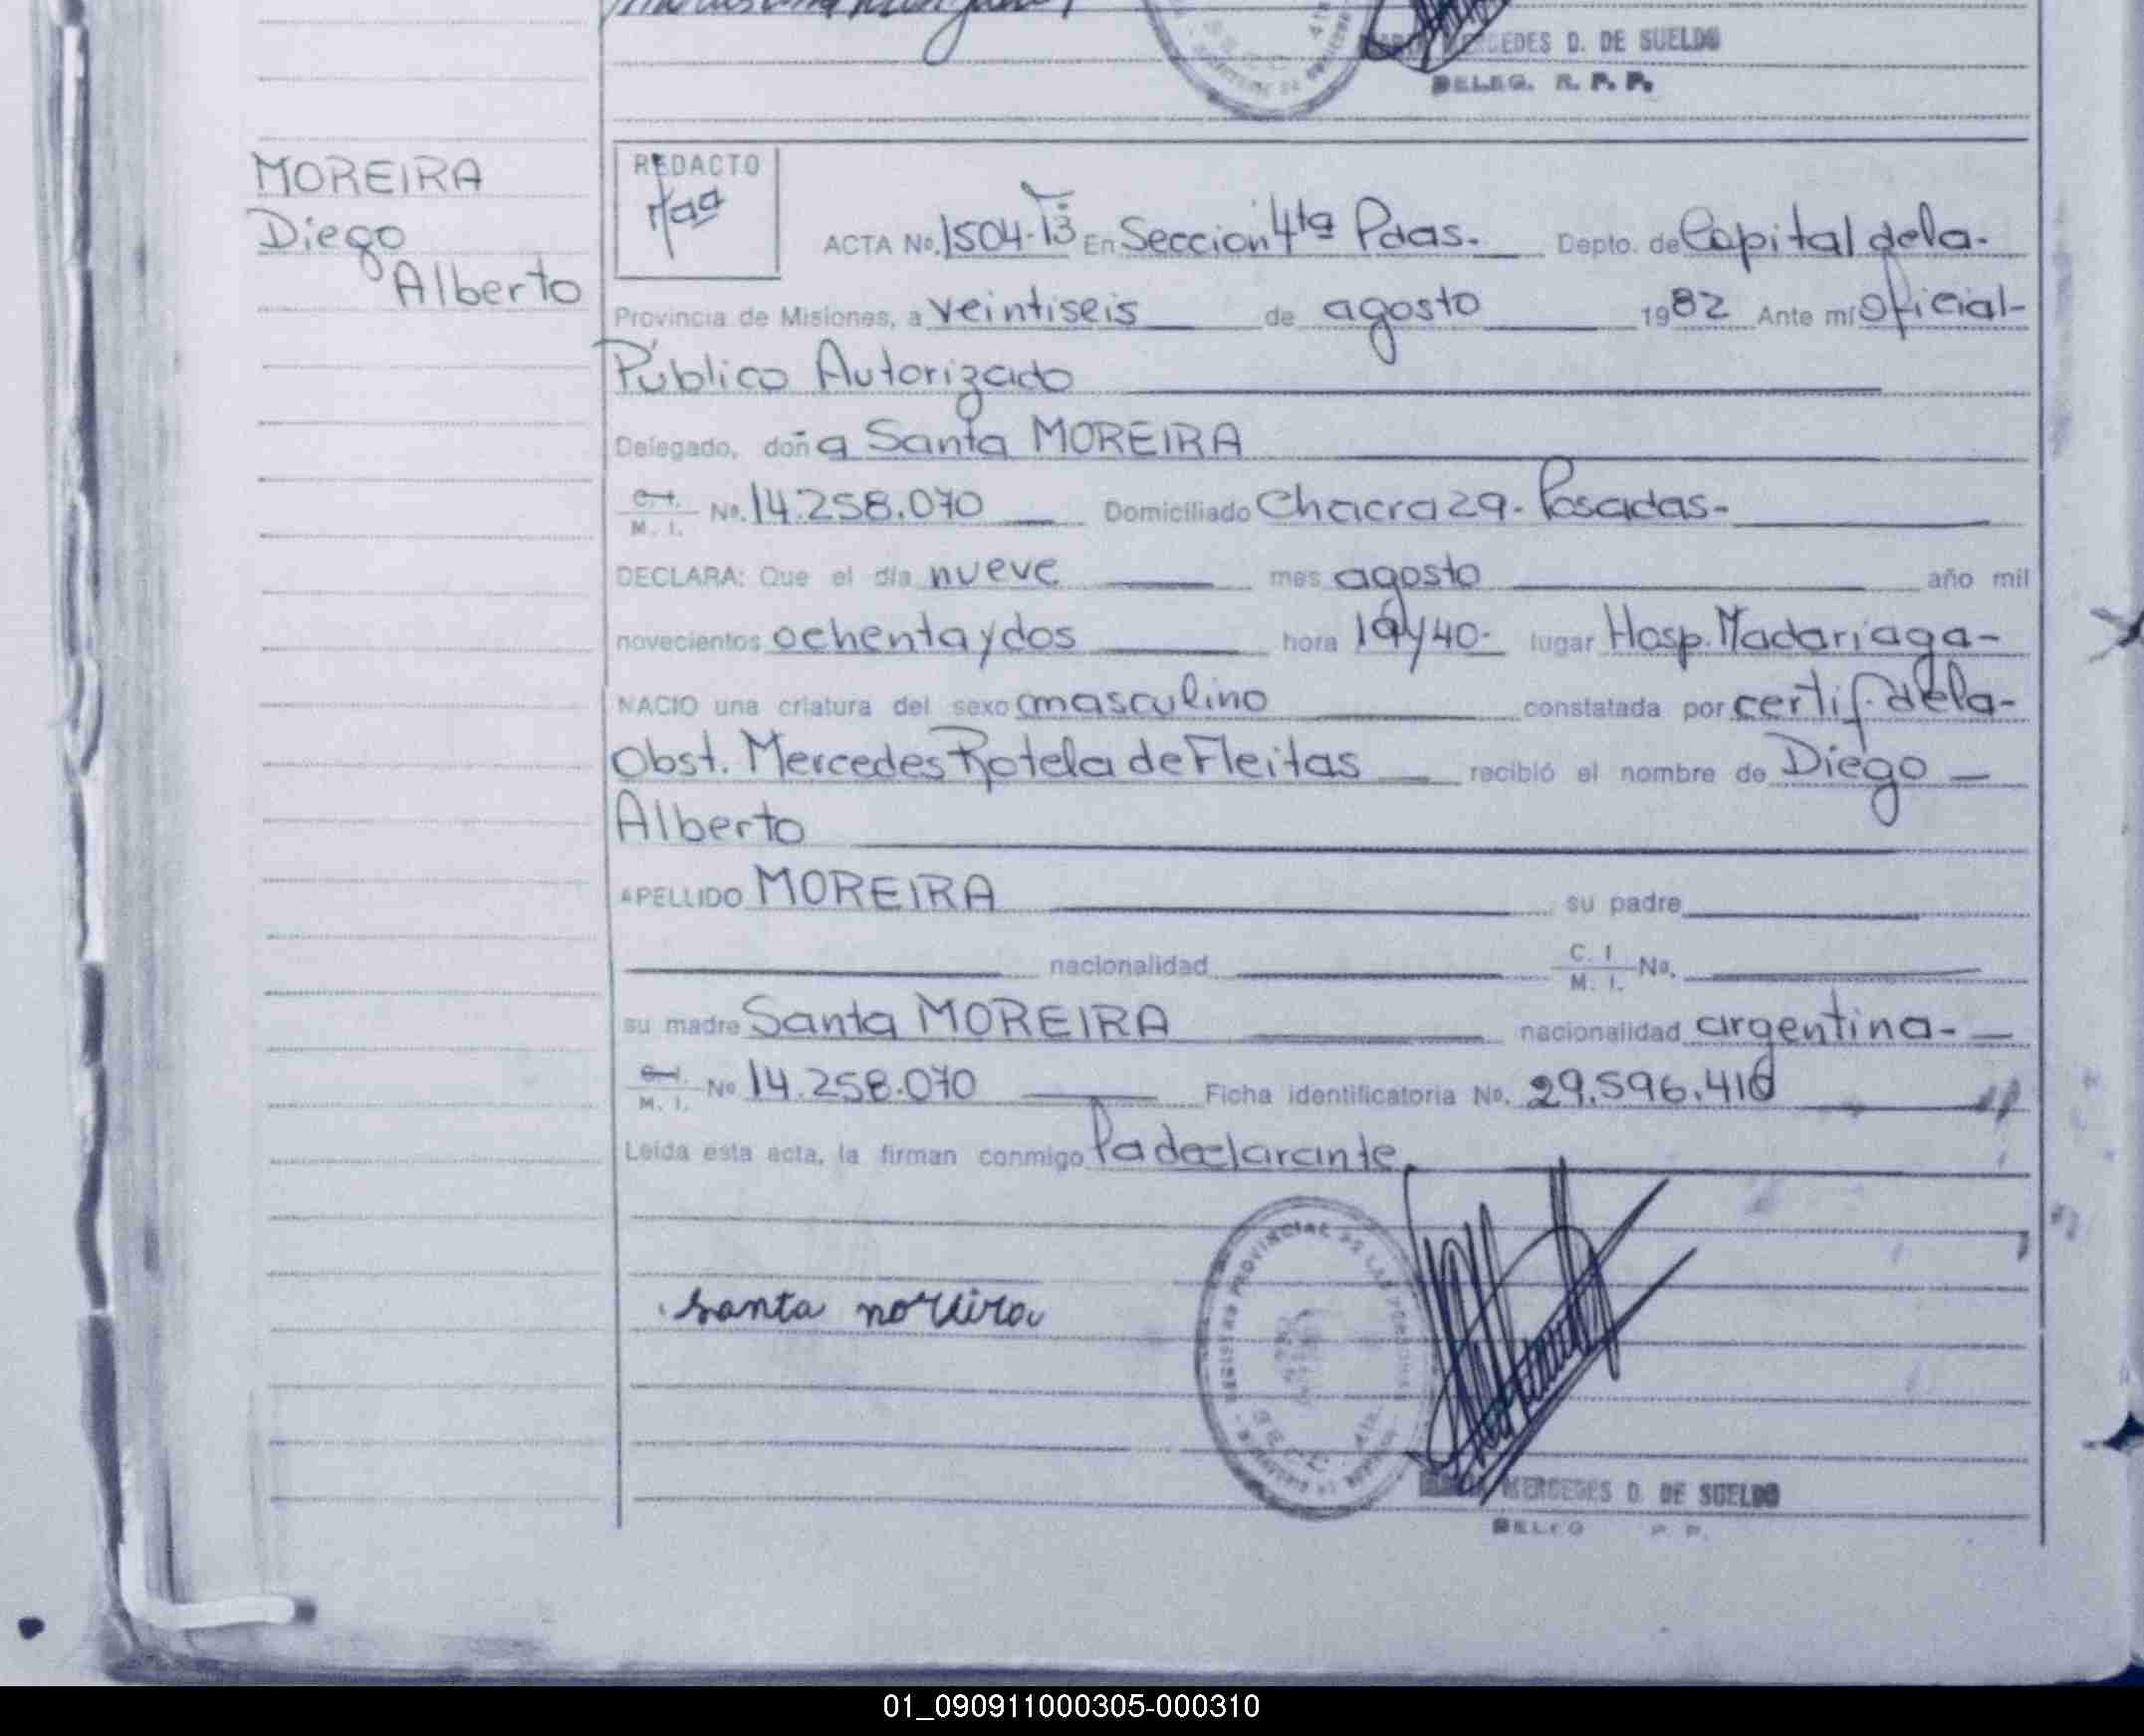 MERCEDES D. DE SUELDO
DELEG. R. P. P.
MOREIRA
Diego
Alberto
REDACTO
ACTA No. 1504-T3 En Seccion 4ta Pdas. Depto. de Capital de la-
Provincia de Misiones, a veintiseis de agosto 1982 Ante mi Oficial-
Público Autorizado
Delegado, doña Santa MOREIRA
C. I. / M. I. No. 14.258.070 Domiciliado Chacra 29- Posadas-
DECLARA: Que el día nueve mes agosto año mil
novecientos ochenta y dos hora 19/40- lugar Hosp. Madariaga-
NACIO una criatura del sexo masculino constatada por certif. de la-
Obst. Mercedes Rotela de Fleitas recibió el nombre de Diego
Alberto
APELLIDO MOREIRA su padre
nacionalidad C. I. / M. I. No.
su madre Santa MOREIRA nacionalidad argentina-
C. I. / M. I. No 14.258.070 Ficha identificatoria No. 29.596.416
Leída esta acta, la firman conmigo la declarante.
REGISTRO PROVINCIAL DE LAS PERSONAS
santa moreira
MERCEDES D. DE SUELDO
DELEG P. P.
01_090911000305-000310